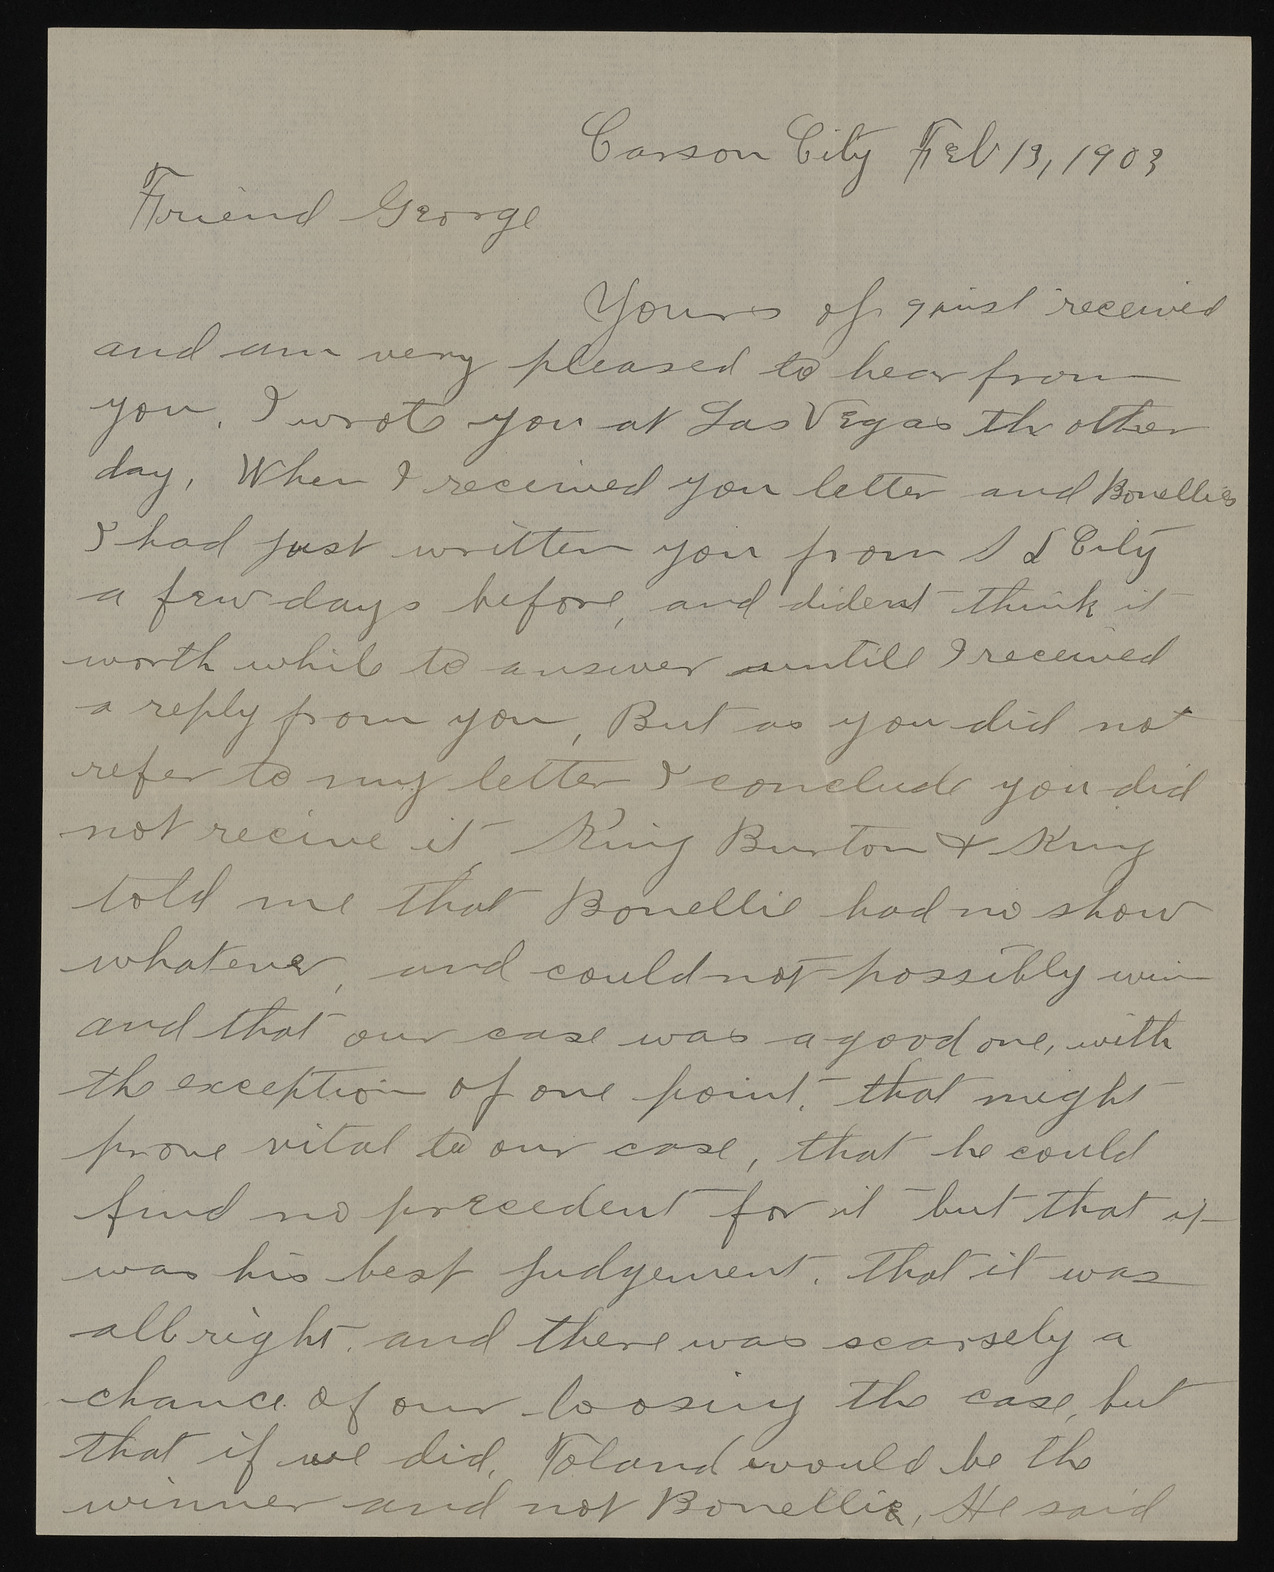 Carson City Feb 13, 1903
Friend George
Yours of 9 inst received
and am very pleased to hear from
you. I wrote you at Las Vegas the other
day. When I received you letter and Bonellies
I had just written you from S L City
a few days before, and dident think it
worth while to answer untill I received
a reply from you, But as you did not
refer to my letter I conclude you did
not recive it, King Burton & King
told me that Bonellie had no show
whatever, and could not possibly win
and that our case was a good one, with
the exception of one point. that might
prove vital to our case, that he could
find no precedent for it but that it
was his best judgement. that it was
all right. and there was scarsely a
chance of our loosing the case, but
that if we did, Toland would be the
winner and not Bonellie, He said